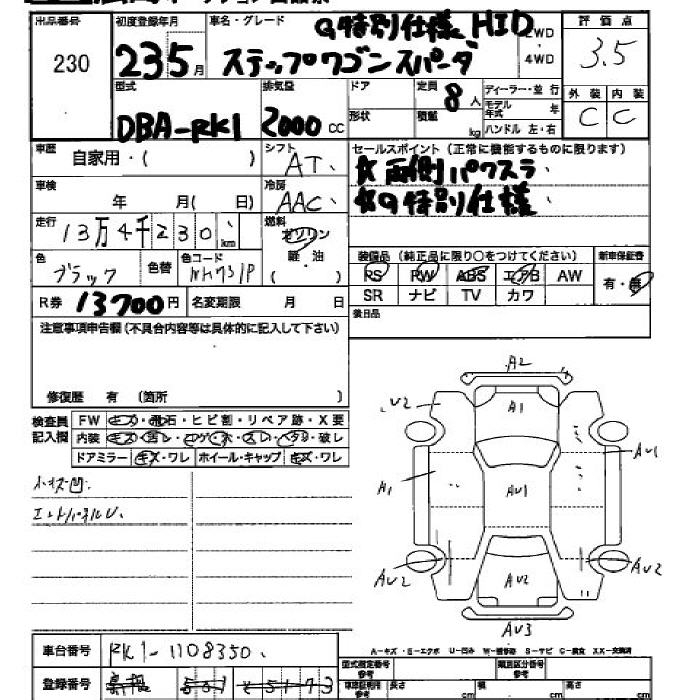 出品番号 初度登録年月 車名・グレード G特別仕様 HID 2WD ・ 4WD 評価点
230 23 5月 ステップワゴンスパーダ 3.5
型式 排気量 ドア 定員 8人 ディーラー・並行 外装 内装
DBA-RK1 2000cc 形状 積載 kg モデル年式 年 C C
ハンドル 左・右
車歴 自家用・( ) シフト AT、 セールスポイント(正常に機能するものに限ります)
☆両側パワスラ
車検 年 月( 日) 冷房 AAC ☆G特別仕様
走行 13万4千230、km 燃料 ガソリン 軽・油 ( )
色 ブラック 色替 色コード NH731P
装備品(純正品に限り○をつけてください) 新車保証書
PS PW ABS エアB AW 有・無
SR ナビ TV カワ
R券 13700円 名変期限 月 日 後日品
注意事項申告欄(不具合内容等は具体的に記入して下さい)
修復歴 有 (箇所 )
検査員記入欄 FW キズ・飛石・ヒビ割・リペア跡・X要
内装 キズ・汚レ・コゲ・穴・スレ・ヘタリ・破レ
ドアミラー キズ・ワレ ホイール・キャップ キズ・ワレ
小キズ凹
エンドパネルU、
A2
U2 A1
AU1
A1 AU1
AU2 AU2 AU2
AU3
A-キズ・E-エクボ U-凹み W-補修跡 S-サビ C-腐食 XX-交換済
車台番号 RK1-1108350、
型式指定番号 参考 類別区分番号 参考
登録番号 島根 501
車体証明用 参考 長さ cm 横 cm 高さ cm